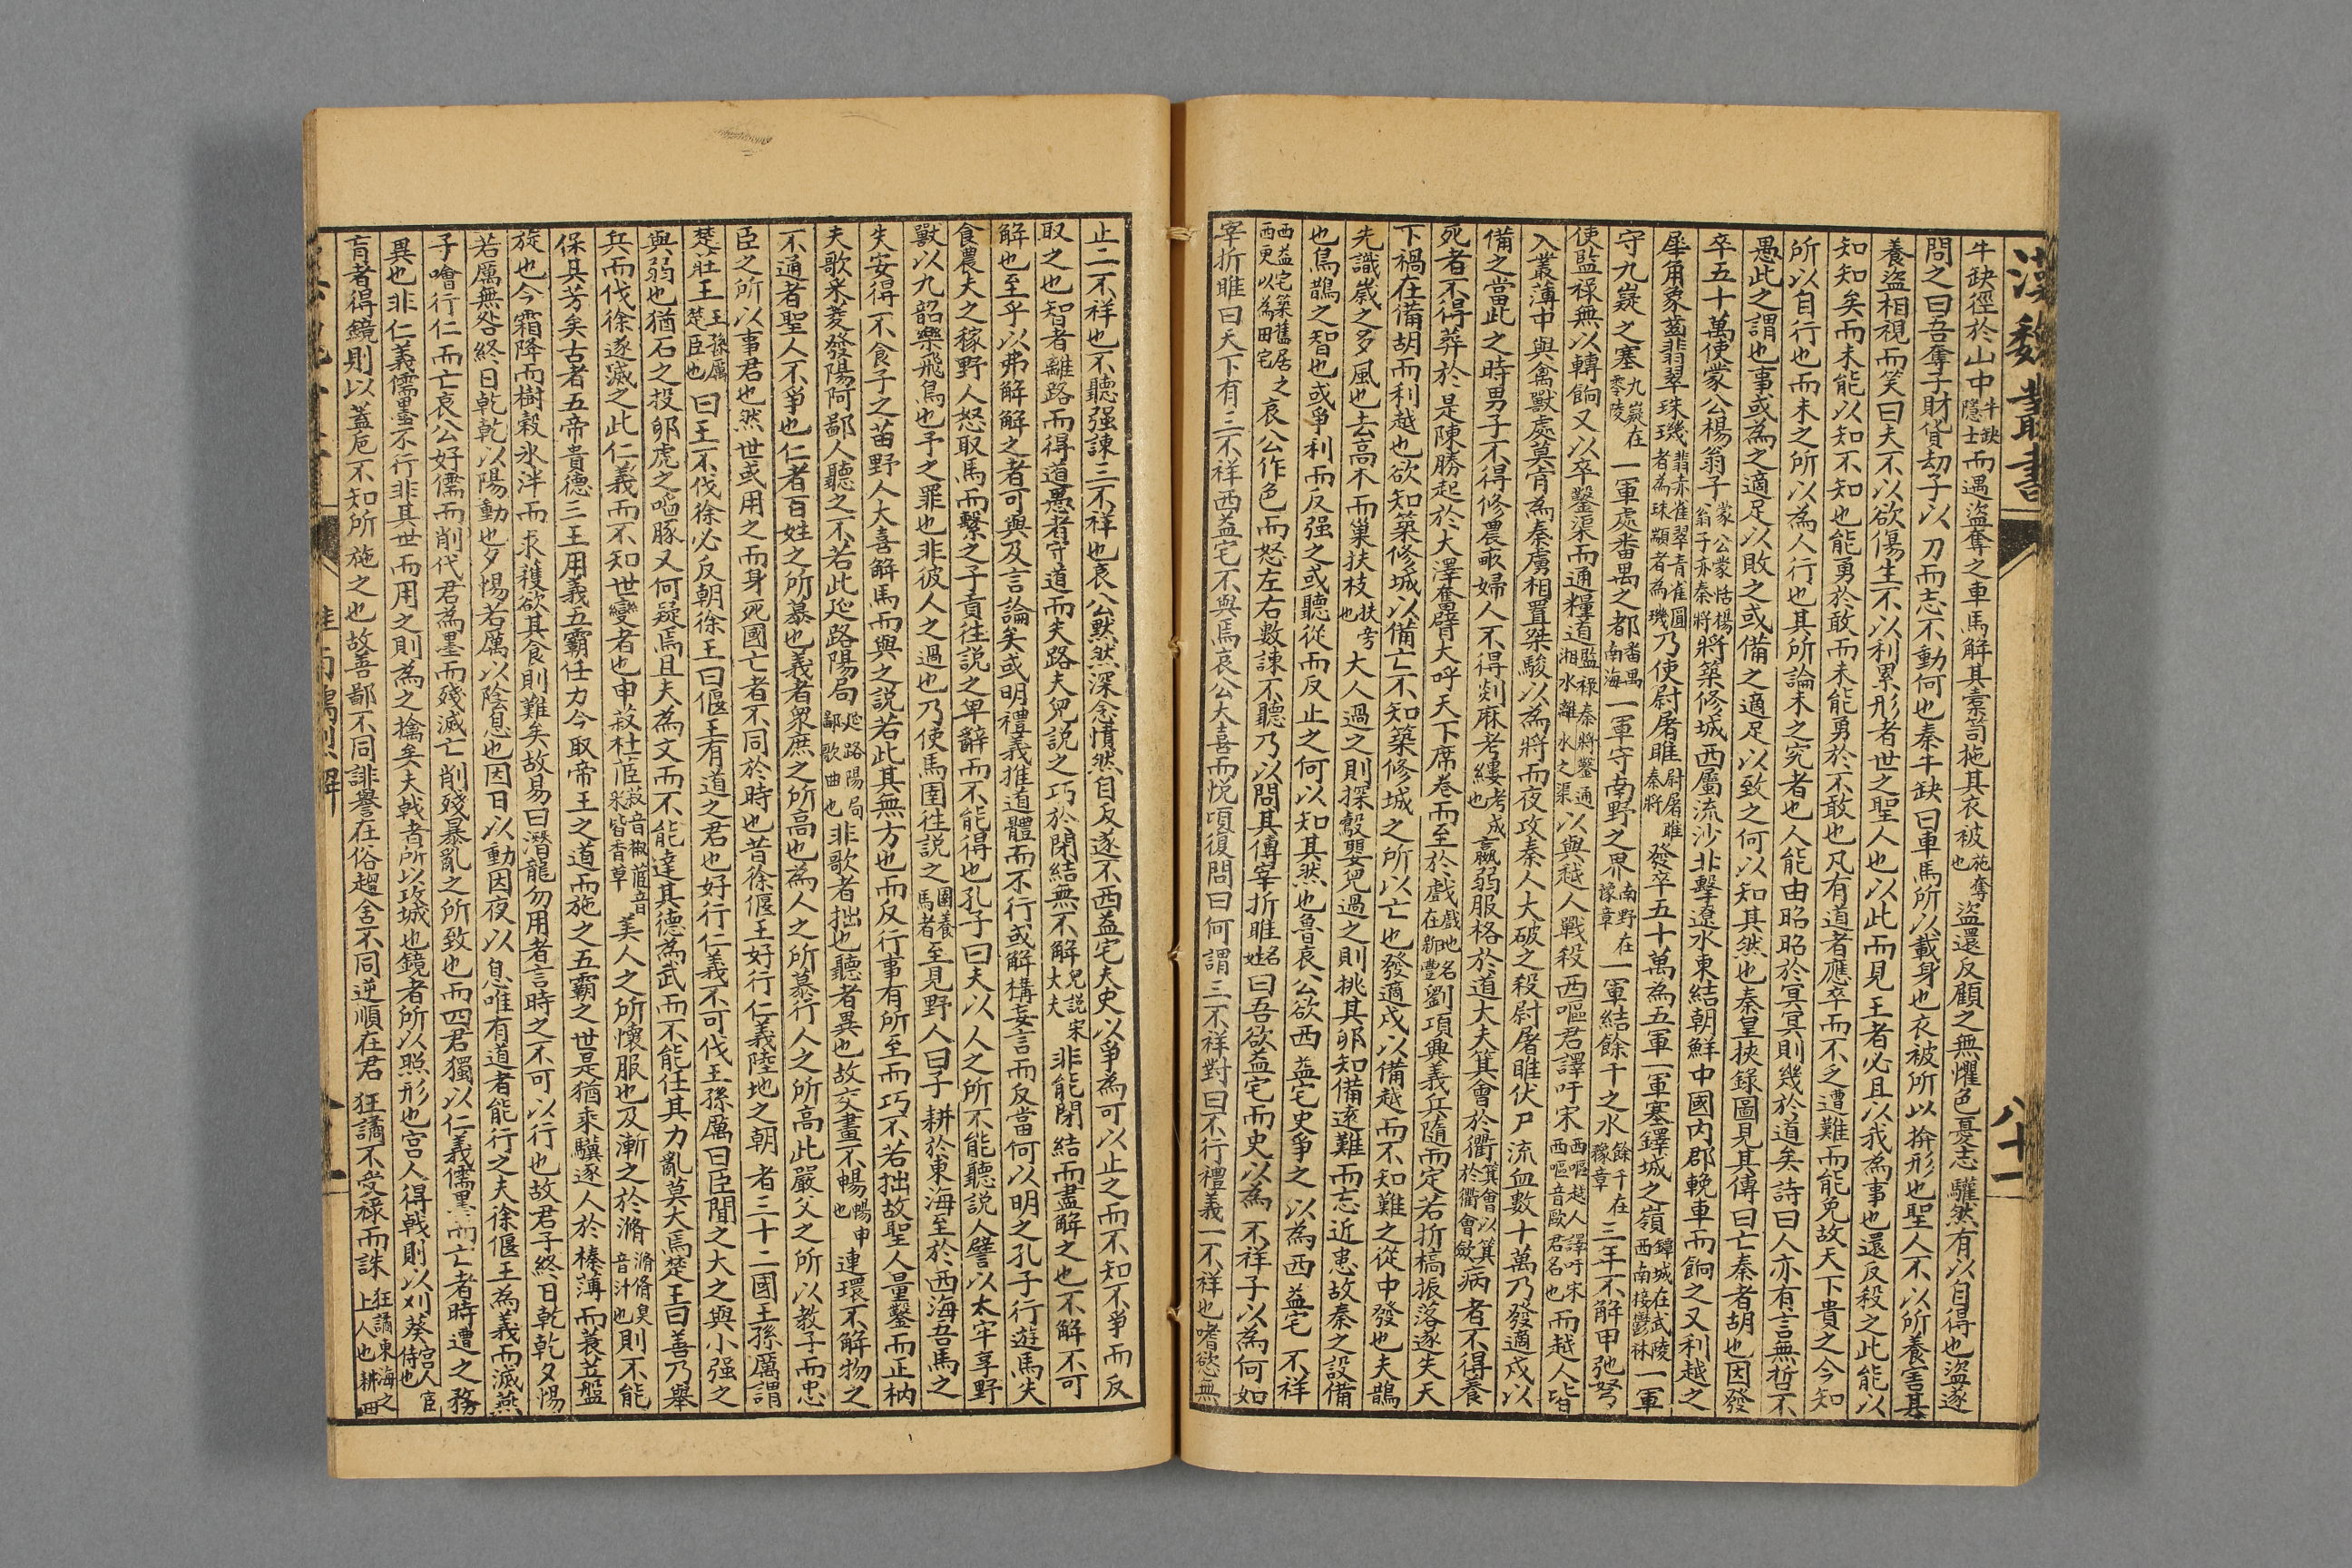 漢魏叢書
八十一
牛缺徑於山中牛缺隱士而遇盜奪之車馬解其橐笥拖其衣被拖奪也盜還反顧之無懼色憂志驩然有以自得也盜遂
問之曰吾奪子財貨劫子以刀而志不動何也秦牛缺曰車馬所以載身也衣被所以揜形也聖人不以所養害其
養盜相視而笑曰夫不以欲傷生不以利累形者世之聖人也以此而見王者必且以我為事也還反殺之此能以
知知矣而未能以知不知也能勇於敢而未能勇於不敢也凡有道者應卒而不乏遭難而能免故天下貴之今知
所以自行也而未之所以為人行也其所論未之究者也人能由昭昭於冥冥則幾於道矣詩曰人亦有言無哲不
愚此之謂也事或為之適足以敗之或備之適足以致之何以知其然也秦皇挾錄圖見其傳曰亡秦者胡也因發
卒五十萬使蒙公楊翁子蒙公蒙恬楊翁子亦秦將將築修城西屬流沙北擊遼水東結朝鮮中國內郡輓車而餉之又利越之
犀角象齒翡翠珠璣翡赤雀翠青雀圓者為珠顈者為璣乃使尉屠睢尉屠睢秦將發卒五十萬為五軍一軍塞鐔城之嶺鐔城在武陵西南接鬱林一軍
守九嶷之塞九嶷在零陵一軍處番禺之都番禺南海一軍守南野之界南野在豫章一軍結餘干之水餘干在豫章三年不解甲弛弩
使監祿無以轉餉又以卒鑿渠而通糧道監祿秦將鑿通湘水離水之渠以與越人戰殺西嘔君譯吁宋西嘔越人譯吁宋西嘔音歐君名也而越人皆
入叢薄中與禽獸處莫肯為秦虜相置桀駿以為將而夜攻秦人大破之殺尉屠睢伏尸流血數十萬乃發適戍以
備之當此之時男子不得修農畝婦人不得剡麻考縷考成也羸弱服格於道大夫箕會於衢箕會以箕於衢會斂病者不得養
死者不得葬於是陳勝起於大澤奮臂大呼天下席卷而至於戲戲地名在新豐劉項興義兵隨而定若折槁振落遂失天
下禍在備胡而利越也欲知築修城以備亡不知築修城之所以亡也發適戍以備越而不知難之從中發也夫鵲
先識歲之多風也去高木而巢扶枝扶旁也大人過之則探鷇嬰兒過之則挑其卵知備遠難而忘近患故秦之設備
也鳥鵲之智也或爭利而反强之或聽從而反止之何以知其然也魯哀公欲西益宅史爭之以為西益宅不祥
西益宅築舊居西更以為田宅之哀公作色而怒左右數諫不聽乃以問其傅宰折睢名姓曰吾欲益宅而史以為不祥子以為何如
宰折睢曰天下有三不祥西益宅不與焉哀公大喜而悅頃復問曰何謂三不祥對曰不行禮義一不祥也嗜慾無
止二不祥也不聽强諫三不祥也哀公默然深念憤然自反遂不西益宅夫史以爭為可以止之而不知不爭而反
取之也智者離路而得道愚者守道而失路夫兒說之巧於閉結無不解兒說宋大夫非能閉結而盡解之也不解不可
解也至乎以弗解解之者可與及言論矣或明禮義推道體而不行或解構妄言而反當何以明之孔子行遊馬失
食農夫之稼野人怒取馬而繫之子貢往說之卑辭而不能得也孔子曰夫以人之所不能聽說人譬以太牢享野
獸以九韶樂飛鳥也予之罪也非彼人之過也乃使馬圉往說之圉養馬者至見野人曰子耕於東海至於西海吾馬之
失安得不食子之苗野人大喜解馬而與之說若此其無方也而反行事有所至而巧不若拙故聖人量鑿而正枘
夫歌釆菱發陽阿鄙人聽之不若此延路陽局延路陽局鄙歌曲也非歌者拙也聽者異也故交畫不暢暢申也連環不解物之
不通者聖人不爭也仁者百姓之所慕也義者衆庶之所高也為人之所慕行人之所高此嚴父之所以教子而忠
臣之所以事君也然世或用之而身死國亡者不同於時也昔徐偃王好行仁義陸地之朝者三十二國王孫厲謂
楚莊王王孫厲楚臣也曰王不伐徐必反朝徐王曰偃王有道之君也好行仁義不可伐王孫厲曰臣聞之大之與小强之
與弱也猶石之投卵虎之啗豚又何疑焉且夫為文而不能達其德為武而不能任其力亂莫大焉楚王曰善乃舉
兵而伐徐遂滅之此仁義而不知世變者也申菽杜茝菽音椒茝音釆皆香草美人之所懷服也及漸之於滫滫脩臭音汁也則不能
保其芳矣古者五帝貴德三王用義五霸任力今取帝王之道而施之五霸之世是猶乘驥逐人於榛薄而蓑笠盤
旋也今霜降而樹穀氷泮而求穫欲其食則難矣故易曰潛龍勿用者言時之不可以行也故君子終日乾乾夕惕
若厲無咎終日乾乾以陽動也夕惕若厲以陰息也因日以動因夜以息唯有道者能行之夫徐偃王為義而滅燕
子噲行仁而亡哀公好儒而削代君為墨而殘滅亡削殘暴亂之所致也而四君獨以仁義儒墨而亡者時遭之務
異也非仁義儒墨不行非其世而用之則為之擒矣夫戟者所以攻城也鏡者所以照形也宮人得戟則以刈葵宮人宦侍也
盲者得鏡則以蓋巵不知所施之也故善鄙不同誹譽在俗趨舍不同逆順在君狂譎不受祿而誅狂譎東海之上人也耕田